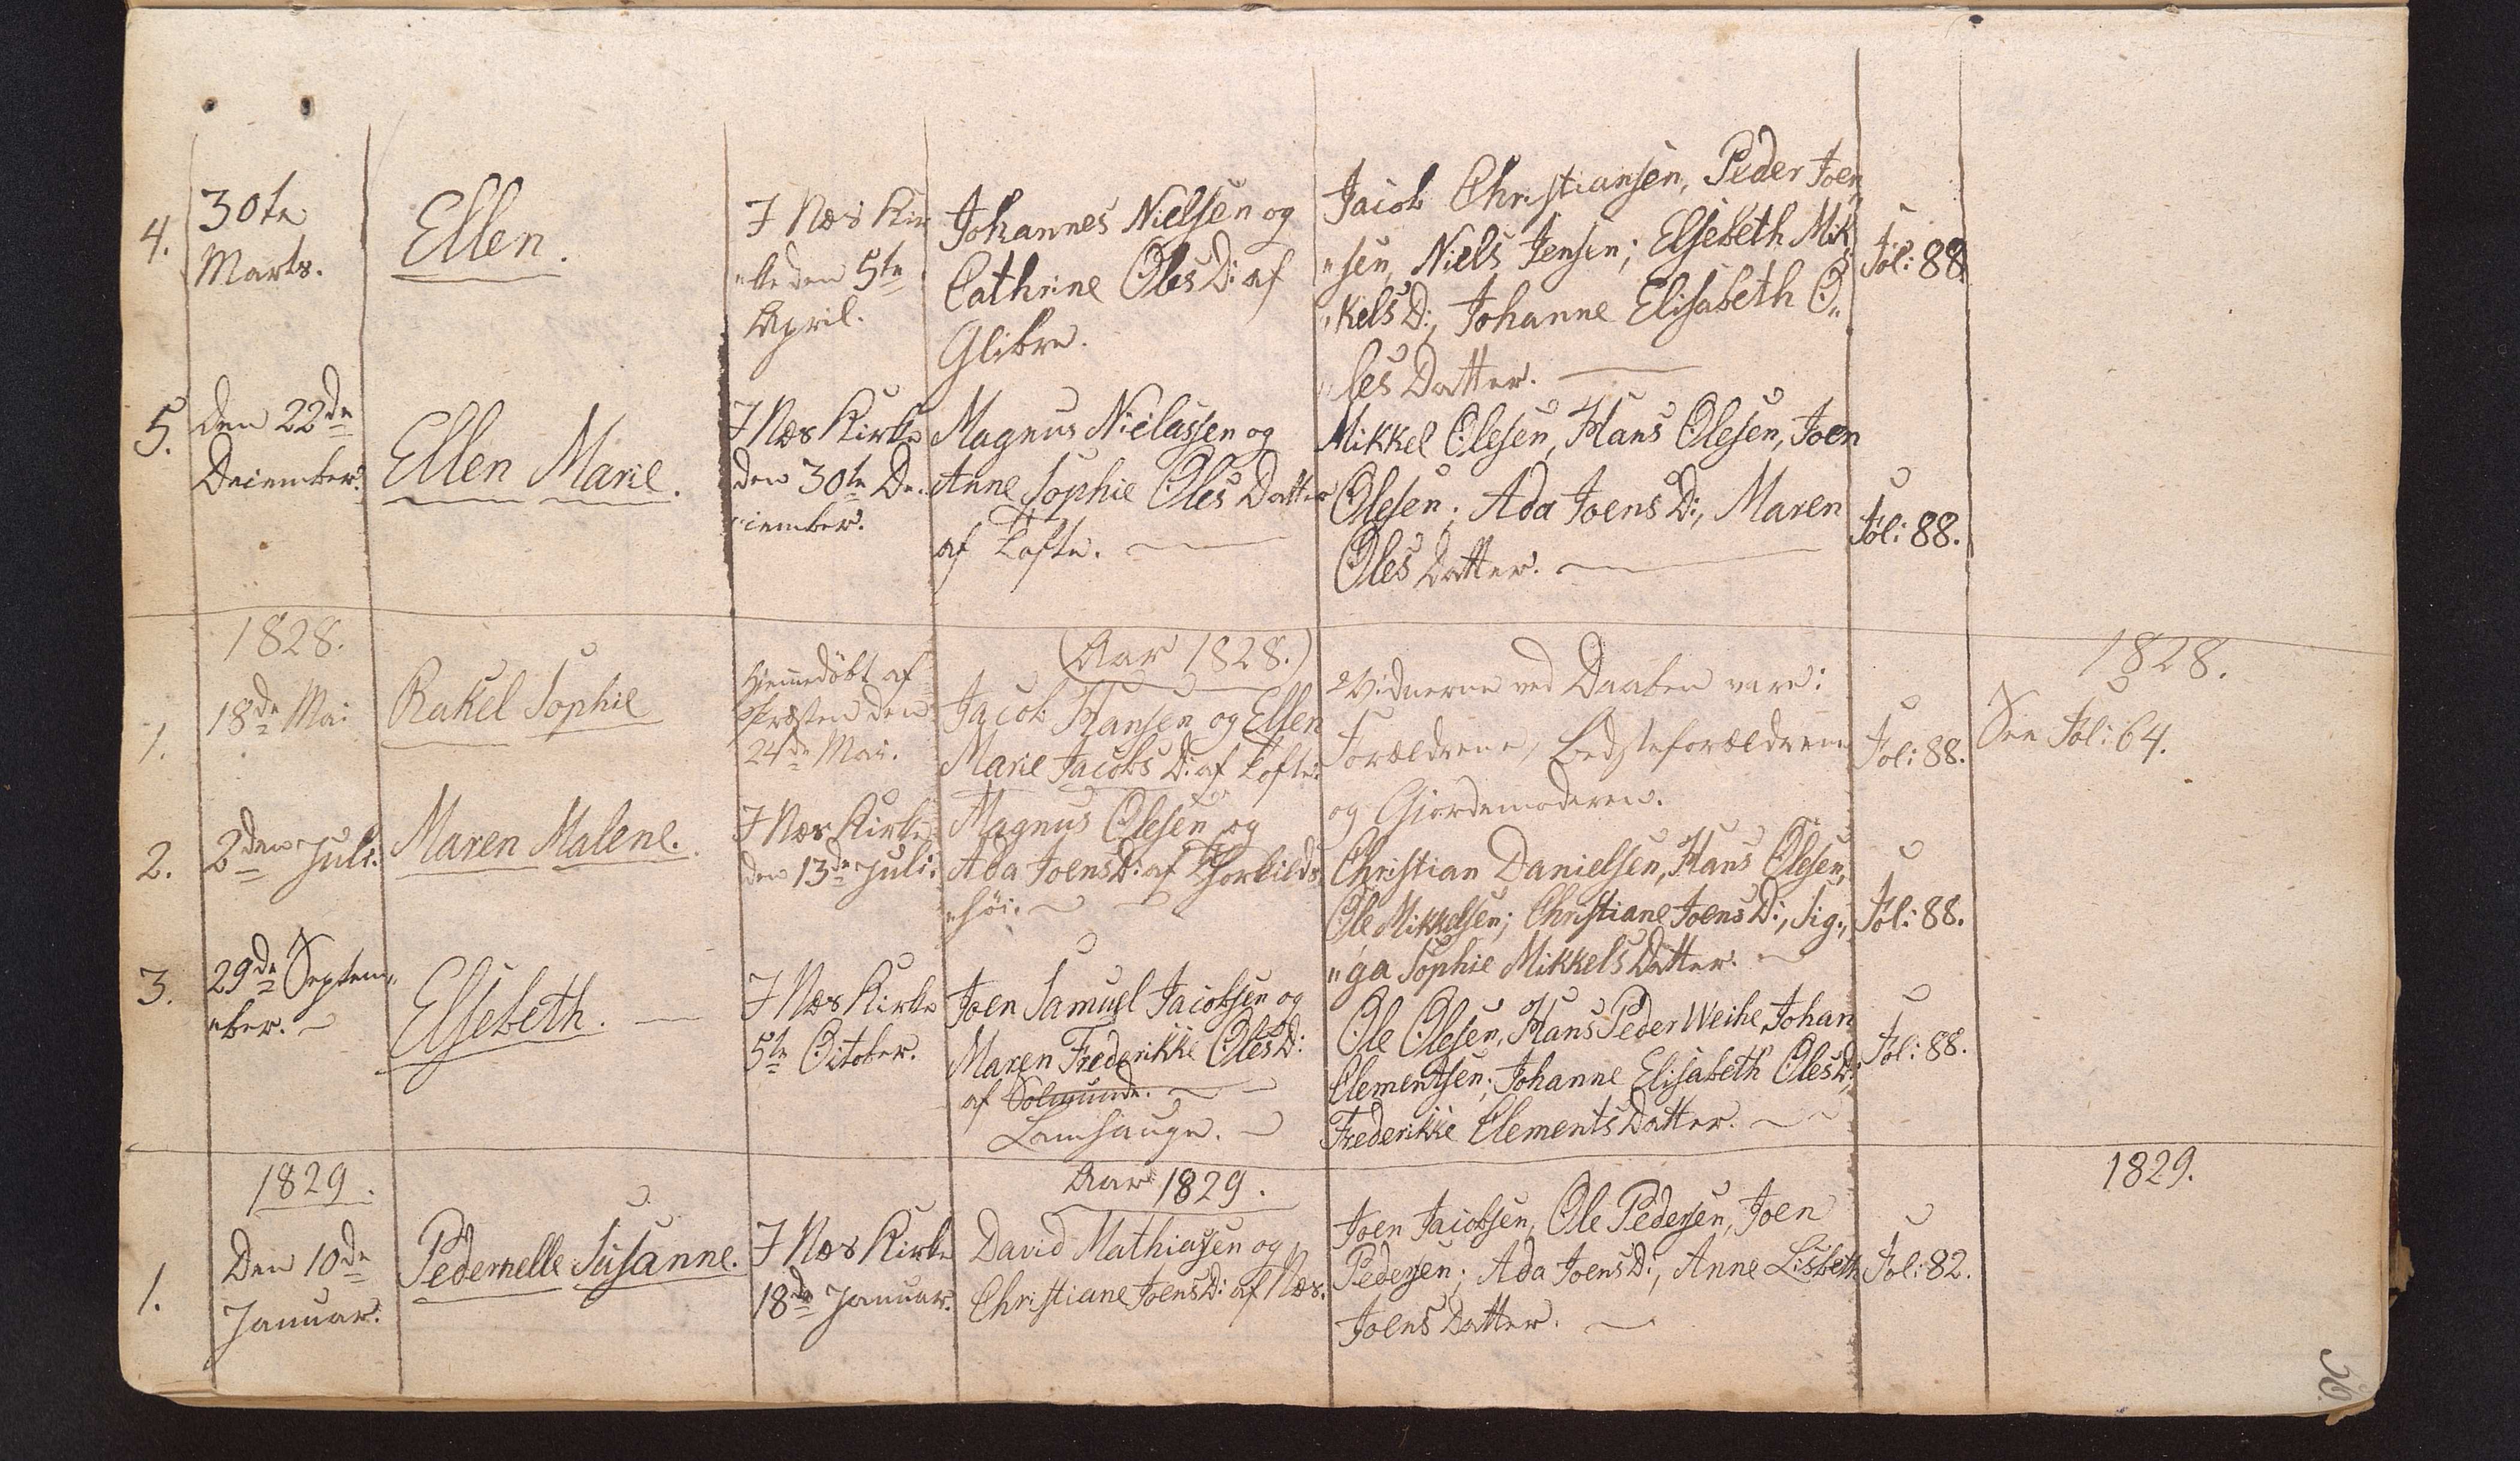 4.
30te
Marts.
Ellen.
I Næs Kir
"ke den 5te
April.
Johannes Nielsen og
Cathrine Oles D: af
Glibre.
Jacob Christiansen, Peder Joen„
„sen, Niels Jensen; Elsebeth Mik„
„kels D:, Johanne Elisabeth O„
„les Datter.
Fol: 88.
5.
Den 22de
December.
Ellen Marie.
I Næs Kirke
den 30te De„
„cember.
Magnus Nielassen og
Anne Sophie Oles Datter
af Tofte.
Mikkel Olesen, Hans Olesen, Joen
Olesen; Ada Joens D:, Maren
Oles Datter.
Fol: 88.
1828.
(Aar 1828.)
1828.
1.
18de Mai
Rakel Sophie
Hjemmedöbt af
Præsten den
24de Mai.
Jacob Hansen og Ellen
Marie Jacobs D: af Tofte.
Vidnerne ved Daaben vare:
Forældrene, Bedsteforældrene
og Gjordemoderen.
Fol: 88.
See Fol: 64.
2.
2den Juli.
Maren Malene.
I Næs Kirke
den 13de Juli.
Magnus Olesen og
Ada Joens D: af Thorkilds
„höi.
Christian Danielsen, Hans Olesen,
Ole Mikkelsen; Christiane Joens D:, Sig„
„ga Sophie Mikkels Datter.
Fol: 88.
3.
29de Septem„
„ber.
Elsebeth.
I Næs Kirke
5te October.
Joen Samuel Jacobsen og
Maren Frederikke Oles D:
af Solmunde.
Lamhauge.
Ole Olesen, Hans Peder Weihe, Johan
Clementsen; Johanne Elisabeth Oles D:,
Frederikke Clements Datter.
Fol: 88.
1829.
Aar 1829.
1829.
1.
Den 10de
Januar.
Pedernelle Susanne.
I Næs Kirke
18de Januar.
David Mathiasen og
Christiane Joens D: af Næs.
Joen Jacobsen, Ole Pedersen, Joen
Pedersen; Ada Joens D:, Anne Lisbeth
Joens Datter.
Fol: 82.